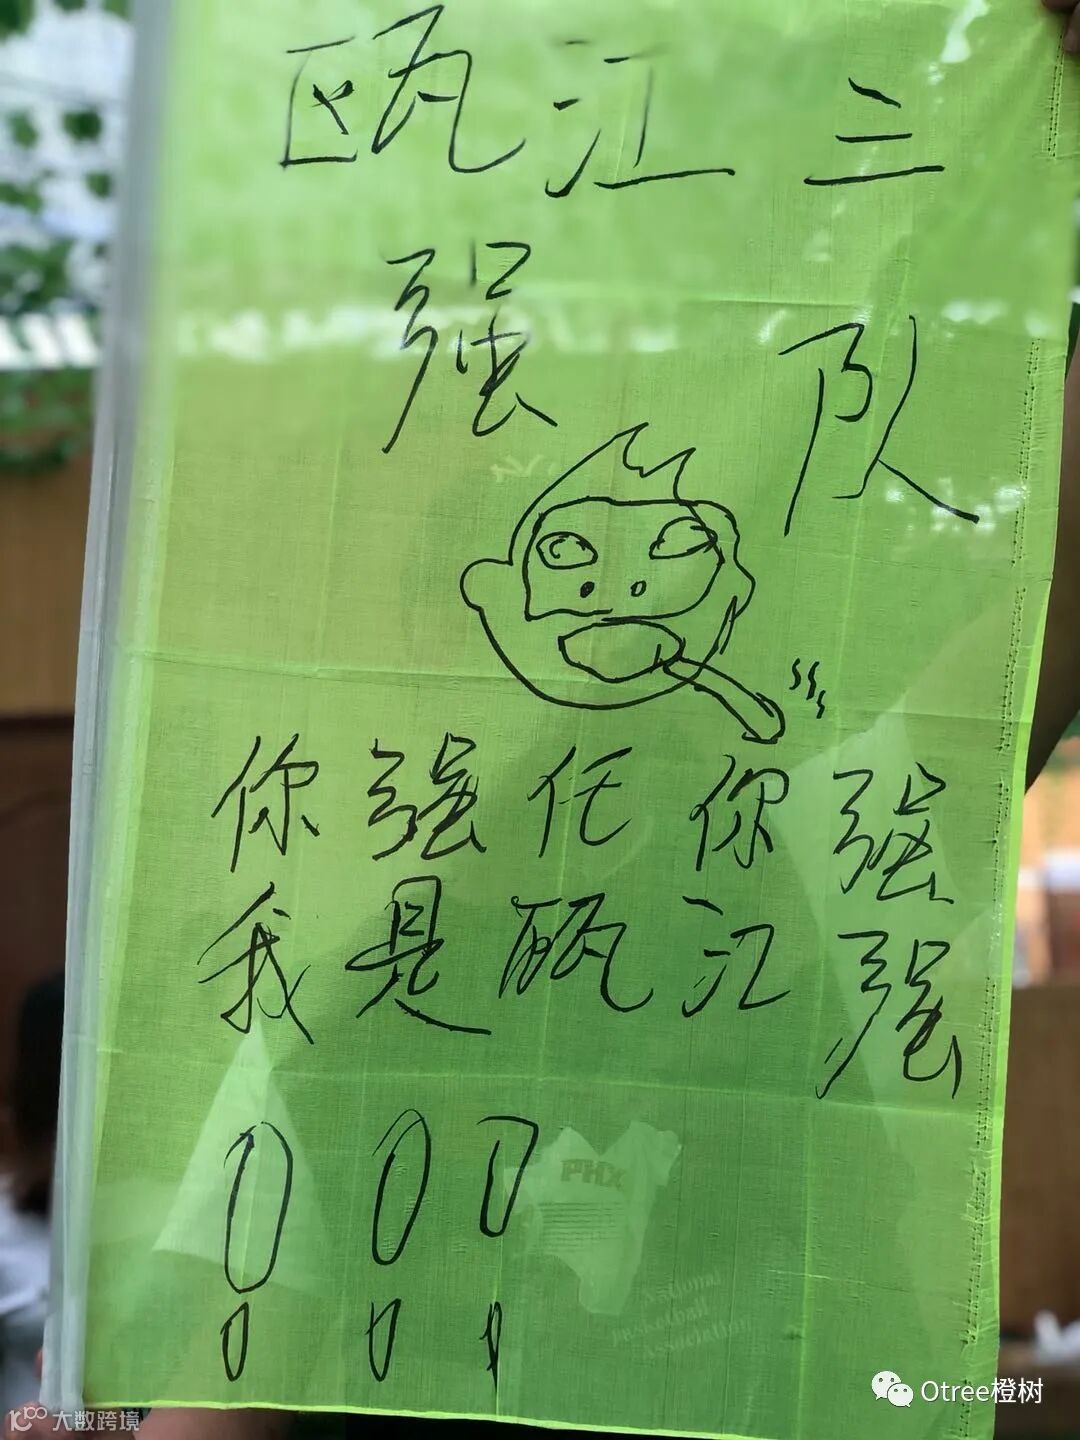 瓯江三
强 队
你强任你强
我是瓯江强
！！！
PHX
National
Basketball
Association
Otree橙树
大数跨境